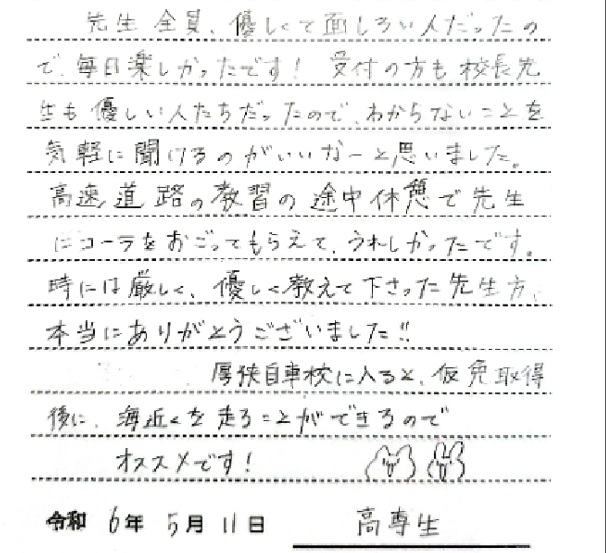 先生全員、優しくて面しろい人だったの
で、毎日楽しかったです！ 受付の方も校長先
生も優しい人たちだったので、わからないことを
気軽に聞けるのがいいなーと思いました。
高速道路の教習の途中休憩で先生
にコーラをおごってもらえて、うれしかったです。
時には厳しく、優しく教えて下さった先生方、
本当にありがとうございました!!
厚狭自車校に入ると、仮免取得
後に、海近くを走ることができるので
オススメです！
令和 6年 5月 11日 高専生